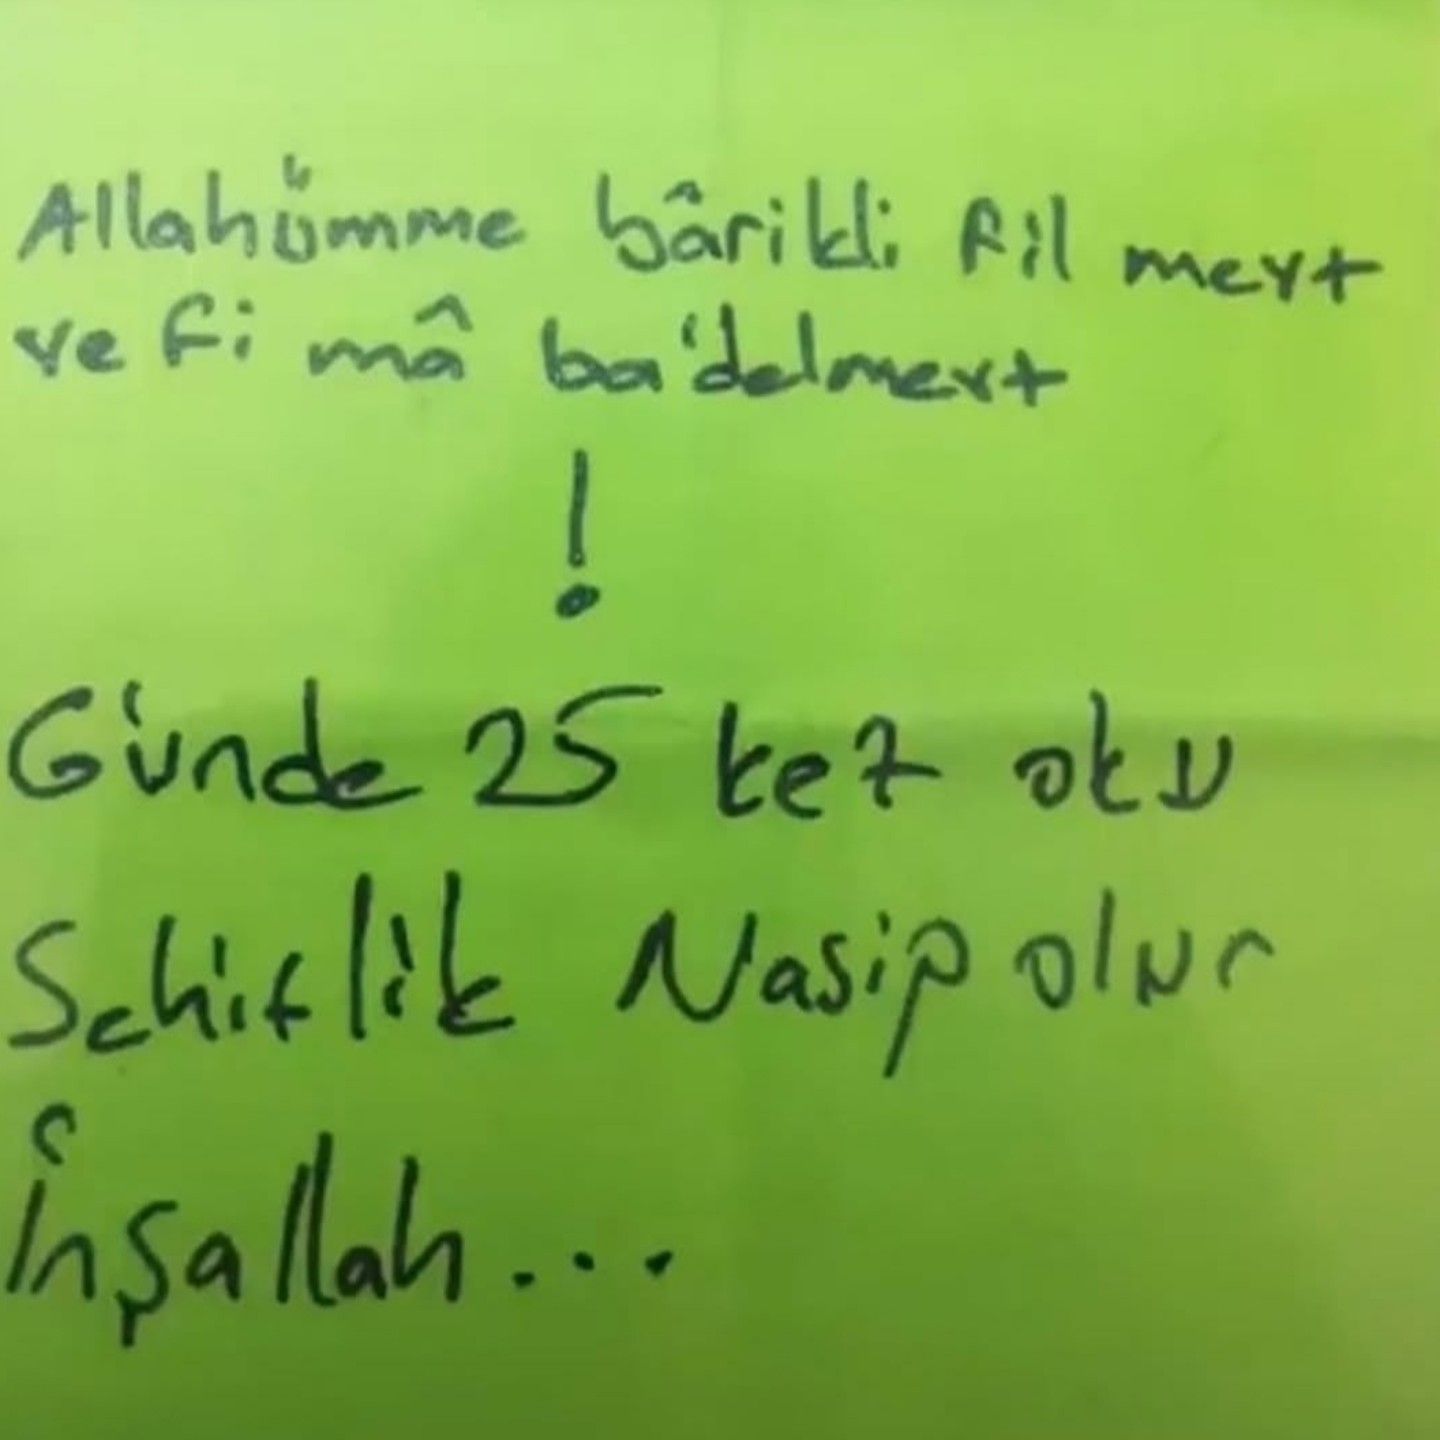 Allahümme bârikli fil mevt
ve fi mâ ba'delmevt
!
Günde 25 kez oku
Sehitlik Nasip olur
İnşallah...